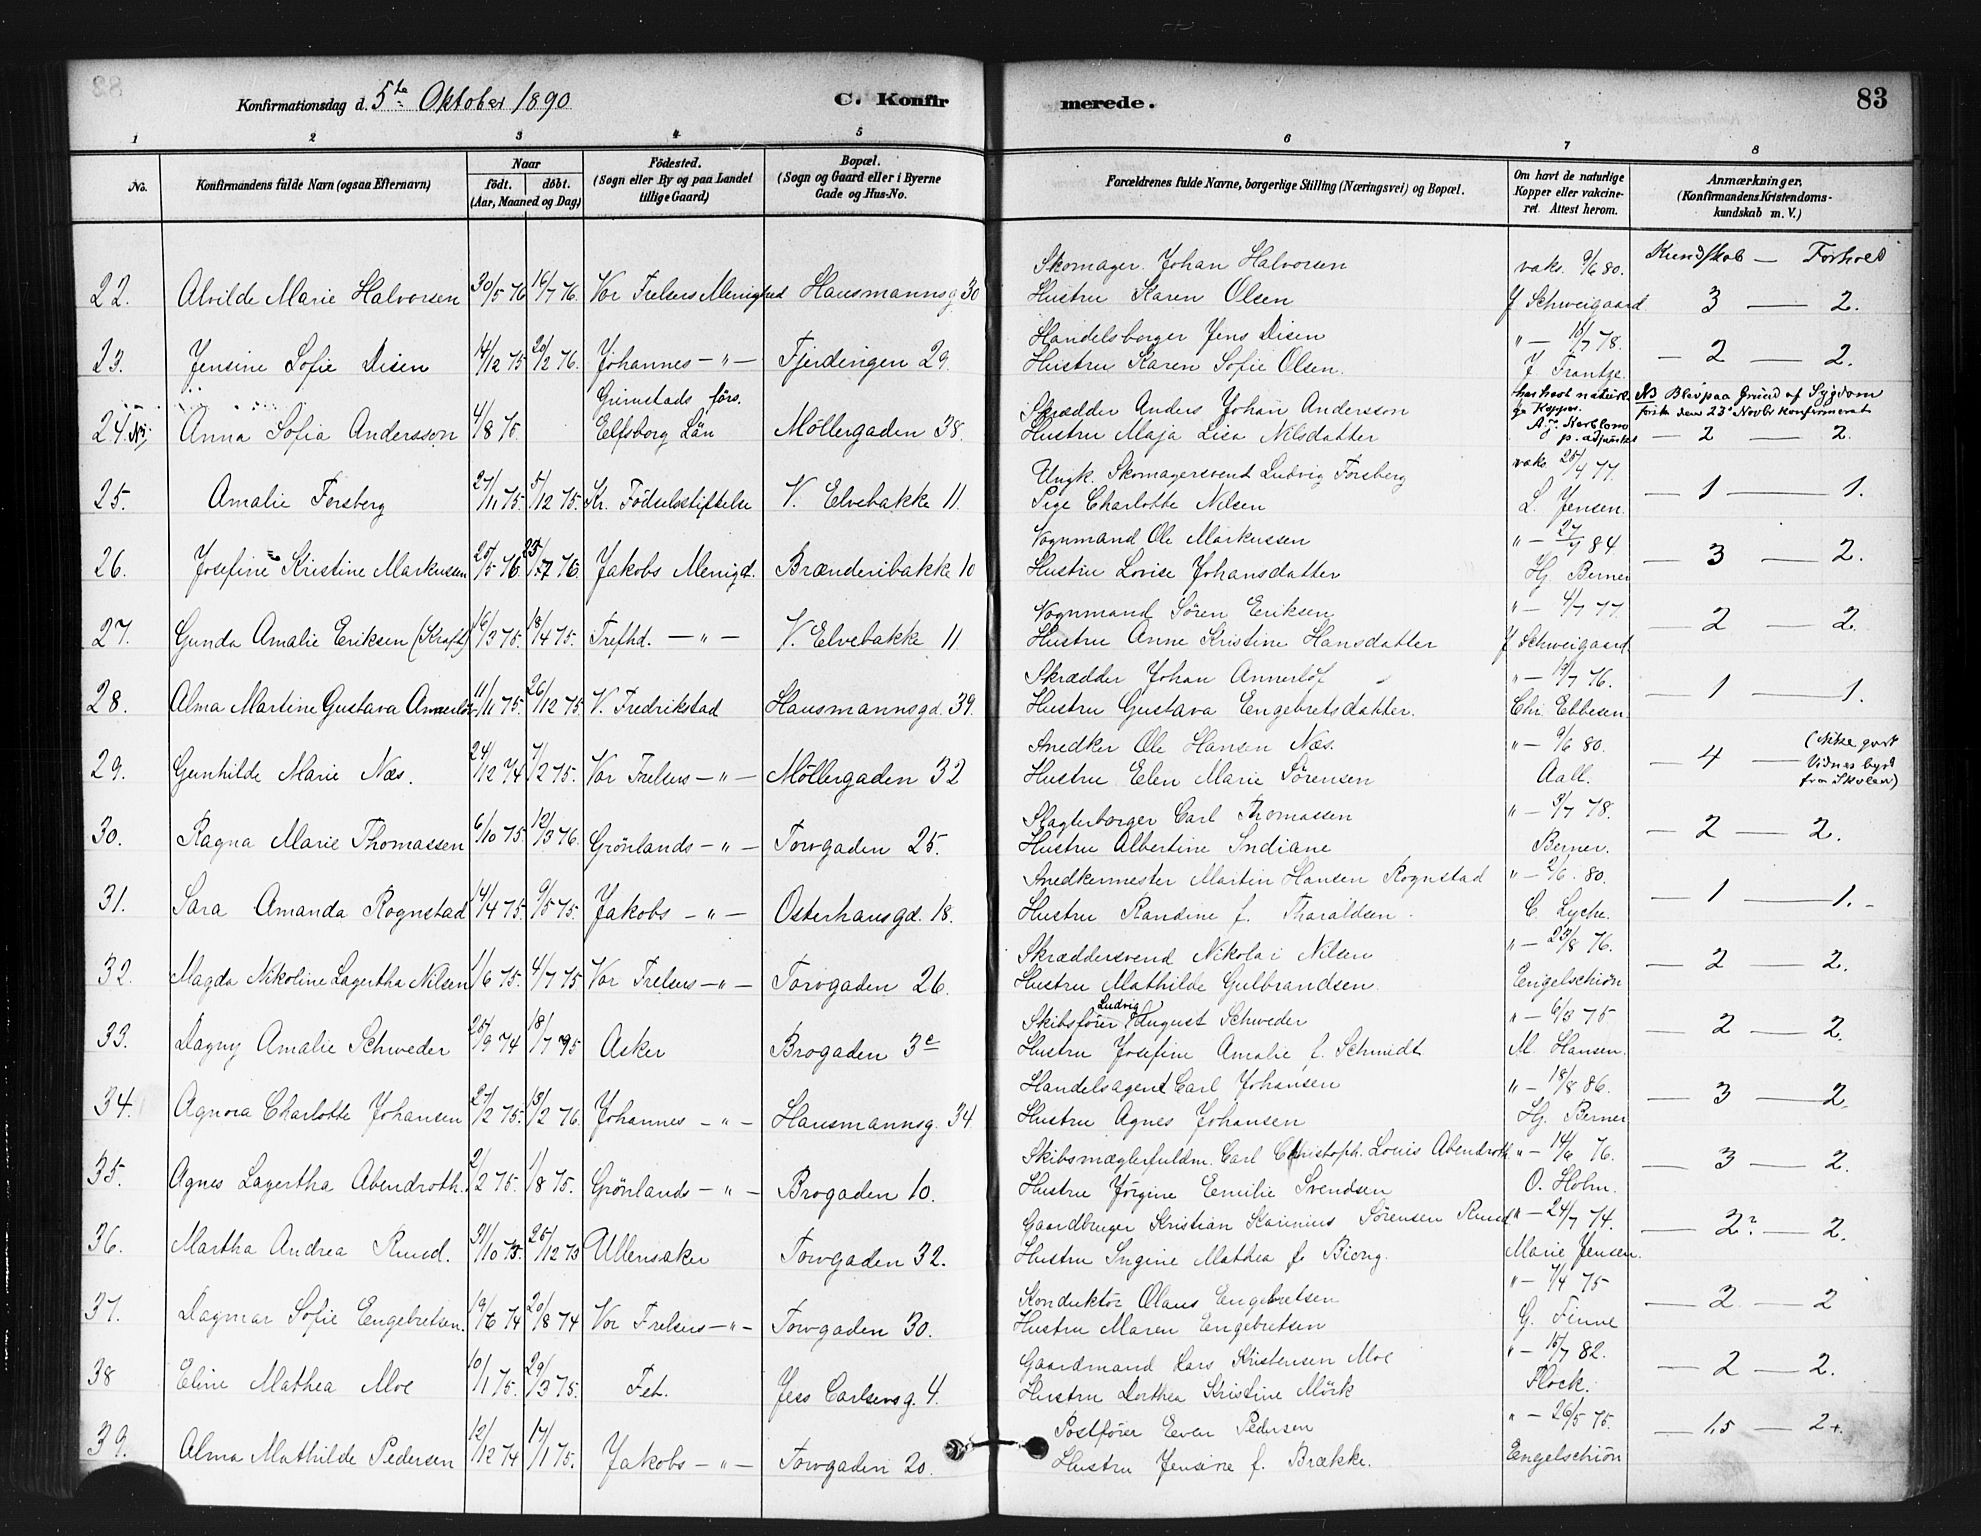 Konfirmationsdag d. 5te Oktober 1890 C. Konfir merede. 83
1 2 3 4 5 6 7 8
No. Konfirmandens fulde Navn (ogsaa Efternavn) Naar født. døbt. (Aar, Maaned og Dag) Födested. (Sogn eller By og paa Landet tillige Gaard) Bopæl. (Sogn og Gaard eller i Byerne Gade og Hus-No. Forældrenes fulde Navne, borgerlige Stilling (Næringsvei) og Bopæl. Om havt de naturlige Kopper eller vakcineret. Attest herom. Anmærkninger, (Konfirmandens Kristendomskundskab m. V.)
Skomager Johan Halvorsen vaks. 9/6 80. Kundskab — Forhold
22. Alvilde Marie Halvorsen 30/5 76 16/7 76. Vor Frelsers Menighed Hausmannsg 30 Hustru Karen Olsen J Schweigaard 3 — 2.
Handelsborger Jens Disen " — 15/7 78.
23. Jensine Sofie Disen 14/12 75 20/2 76. Johannes — " — Fjerdingen 29. Hustru Karen Sofie Olsen. J Frantze. — 2 — 2.
Grimstads förs. Skrædder Anders Johan Andersson har havt naturlige Kopper. NB Blev paa Grund af Sygdom först den 23de Novbr konfirmeret
24. Anna Sofia Andersson 4/8 75. Elfsborg Län Möllergaden 38. Hustru Maja Lisa Nilsdatter p. adjunkt — 2 — 2.
Ungk. Skomagersvend Ludvig Forsberg vaks. 25/4 77.
25. Amalie Forsberg 27/11 75. 5/12 75. Kr. Födselsstiftelse V. Elvebakke 11. Pige Charlotte Nilsen L. Jensen. — 1 — 1.
Vognmand Ole Markussen " — 84
26. Josefine Kristine Markussen 25/5 76. 23/7 76. Jakobs Menigd. Brænderibakke 10 Hustru Lovise Johansdatter Hj. Berner 3 — 2.
Vognmand Sören Eriksen " — 4/7 77.
27. Gunda Amalie Eriksen (Kraft) 16/3 75. 18/4 75. Trefhd. — " — V. Elvebakke 11 Hustru Anne Kristine Hansdatter J Schweigaard. — 2 — 2.
Skrædder Johan Annerlöf " — 19/7 76.
28. Alma Martine Gustava Annerlöf 11/11 75. 26/12 75. V. Fredrikstad Hausmannsgd. 39. Hustru Gustava Engebretsdatter. Chr. Ebbesen. — 1 — 1.
Snedker Ole Hansen Næs. " — 9/6 80. (Ikke godt Vidnesbyrd fra Skolen)
29. Gunhilde Marie Næs. 24/12 74 7/2 75. Vor Frelsers — " — Möllergaden 32 Hustru Elen Marie Sörensen Aall. — 4 —
Slagterborger Carl Thomassen " — 3/7 78.
30. Ragna Marie Thomassen 6/10 75 12/3 76. Grönlands — " — Torvgaden 25. Hustru Albertine Indiane Berner. — 2 — 2.
Snedkermester Martin Hansen Rognstad " — 2/6. 80.
31. Sara Amanda Rognstad 14/4 75. 9/5 75. Jakobs — " — Osterhausgd. 18. Hustru Randine f. Tharaldsen. C. Lyche. — 1 — 1. -
Skræddersvend Nikolai Nilsen " — 23/8 76.
32. Magda Nikoline Lagertha Nilsen 1/6 75. 4/7 75 Vor Frelsers — " — Torvgaden 26. Hustru Mathilde Gulbrandsen. Engelschiön — 2 — 2.
Skibsförer Ludvig August Schweder " — 6/3 75
33. Dagny Amalie Schweder 25/9 74 18/7 75 Asker Brogaden 3c Hustru Josefine Amalie f. Schmidt M. Hansen. — 2 — 2.
Handelsagent Carl Johansen " — 18/8 86.
34. Agnora Charlotte Johansen 27/2 75. 13/2 76. Johannes — " — Hausmannsg. 34 Hustru Agnes Johansen Hj. Berner — 3 — 2.
Skibsmæglerfuldm. Carl Christoph. Louis Abendroth " — 14/6 76.
35. Agnes Lagertha Abendroth. 2/2 75. 1/8 75. Grönlands — " — Brogaden 10. Hustru Jörgine Emilie Svendsen O. Holm. — 3 — 2.
Gaardbruger Kristian Karinius Sörensen Ruud " — 24/7 74.
36. Martha Andrea Ruud. 31/10 73. 25/12 73 Ullensaker Torvgaden 32. Hustru Ingine Mathea f. Bierig. Marie Jensen. — 2? — 2.
Konduktör Olaus Engebretsen " — 7/4 75
37. Dagmar Sofie Engebretsen. 19/6 74 20/8 74 Vor Frelsers — " — Torvgaden 30. Hustru Maren Engebretsen G. Finne — 2 — 2
Gaardmand Lars Kristensen Moe " — 15/7 82.
38 Eline Mathea Moe 10/1 75. 29/3 75. Fet. Jess Carlsensg. 4. Hustru Dorthea Kristine Mörk Flock. — 2 — 2.
Postförer Even Pedersen " — 26/5 75.
39. Alma Mathilde Pedersen 12/12 74 17/1 75. Jakobs — " — Torvgaden 20. Hustru Jensine f. Brække. Engelschiön — 1,5 — 2+.